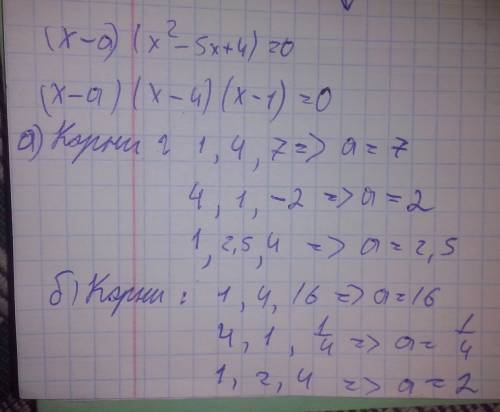 (x-a)(x²-5x+4)=0
(x-a)(x-4)(x-1)=0
а) Корни: 1, 4, 7 => a=7
4, 1, -2 => a=2
1, 2,5, 4 => a=2,5
б) Корни: 1, 4, 16 => a=16
4, 1, 1/4 => a=1/4
1, 2, 4 => a=2